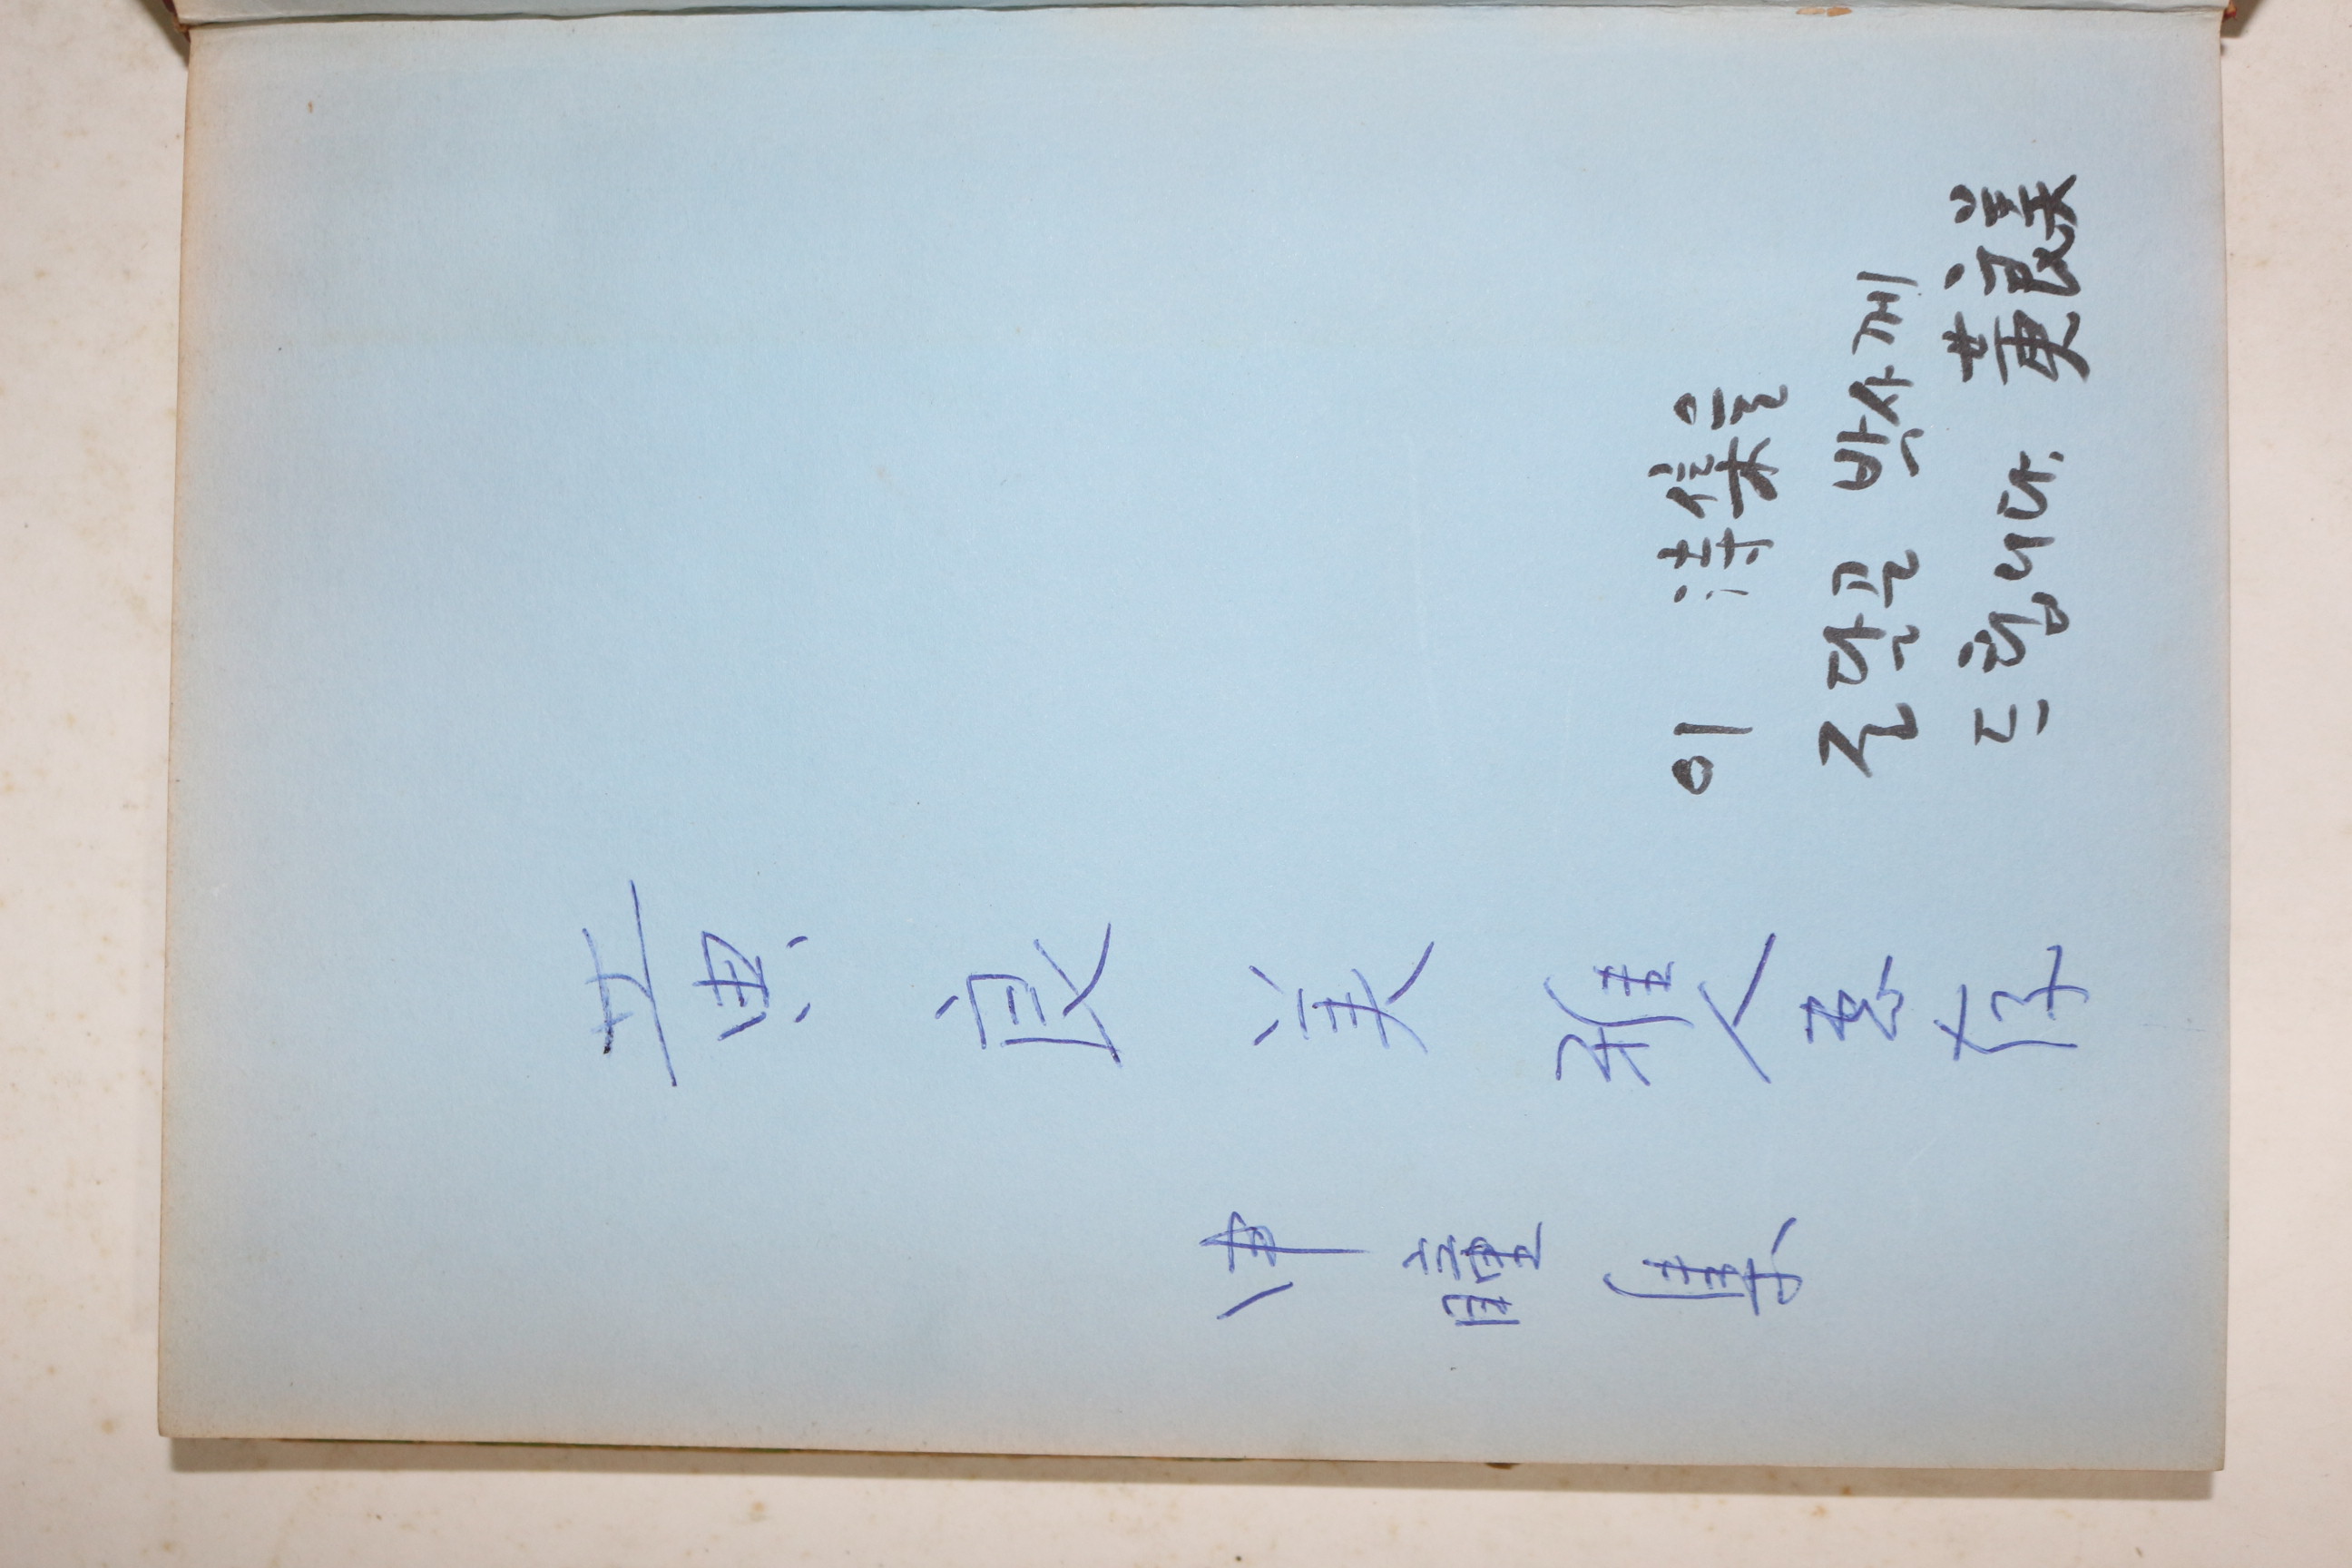 黃良美雅人惠存
申瞳集
이 詩集을
조달곤 박사께
드립니다. 黃良美